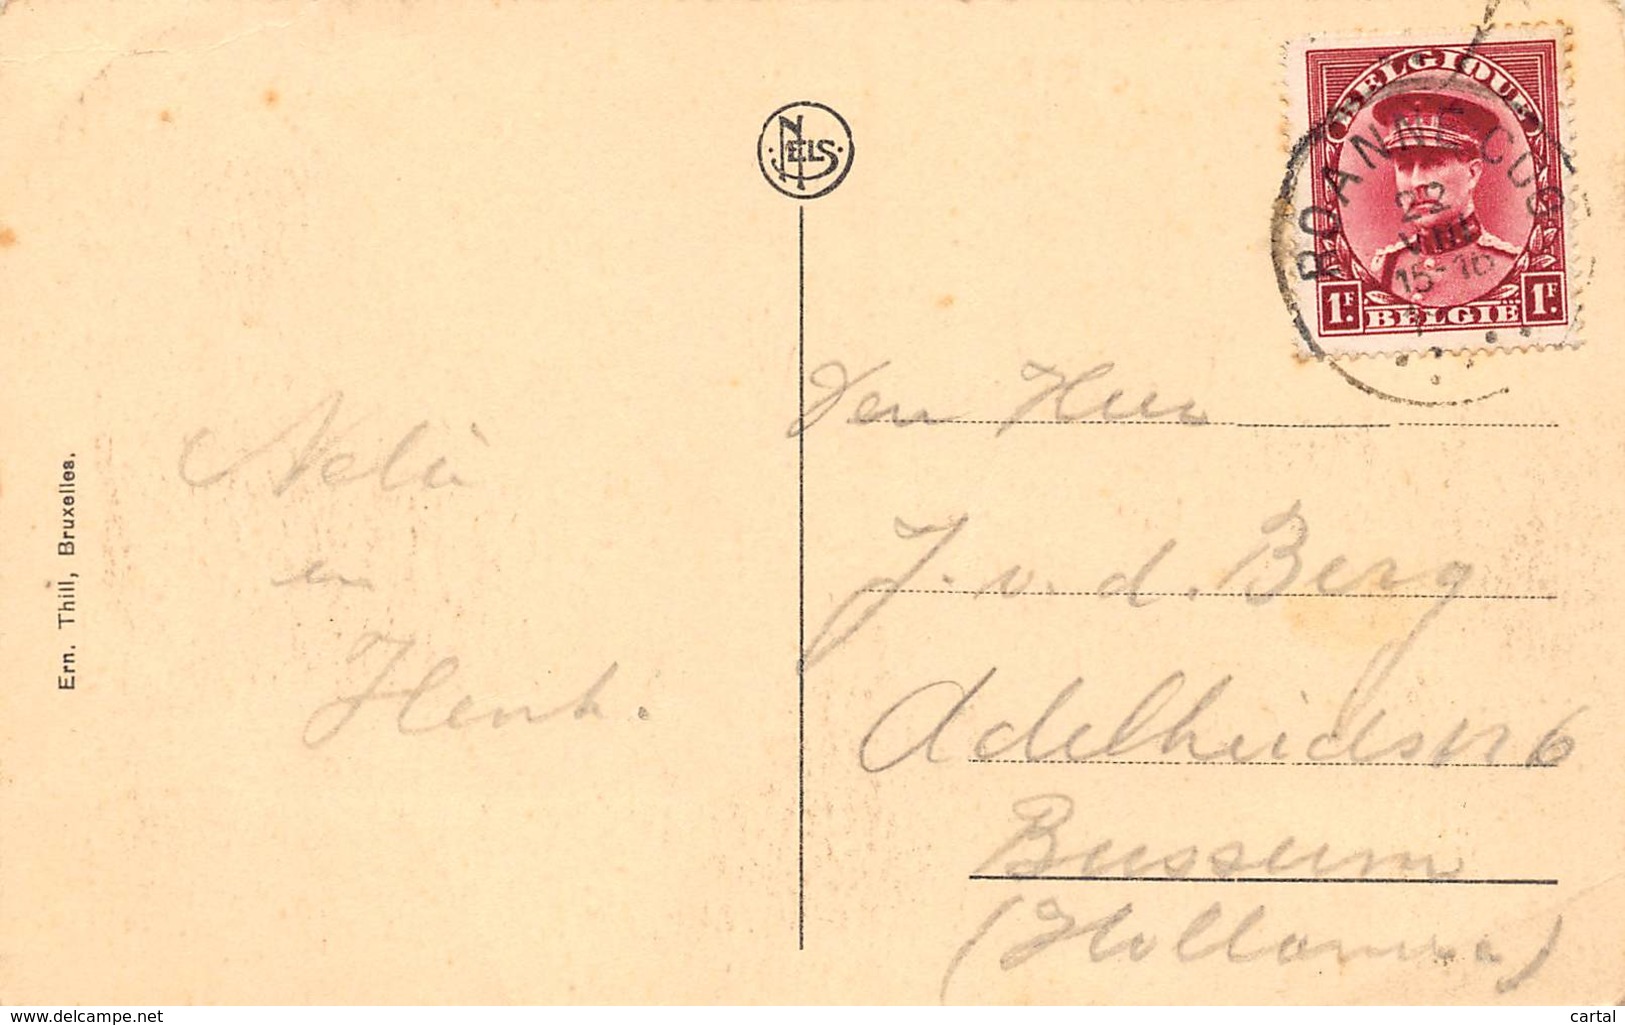 NELS
BELGIQUE
ROANNE COO
22
VIII
15-16
1F. BELGIË 1F.
Ern. Thill, Bruxelles.
en
Henk.
Den Heer
J. v. d. Berg
Adelheidstr 6
Bussum
(Holland)
www.delcampe.net
cartal